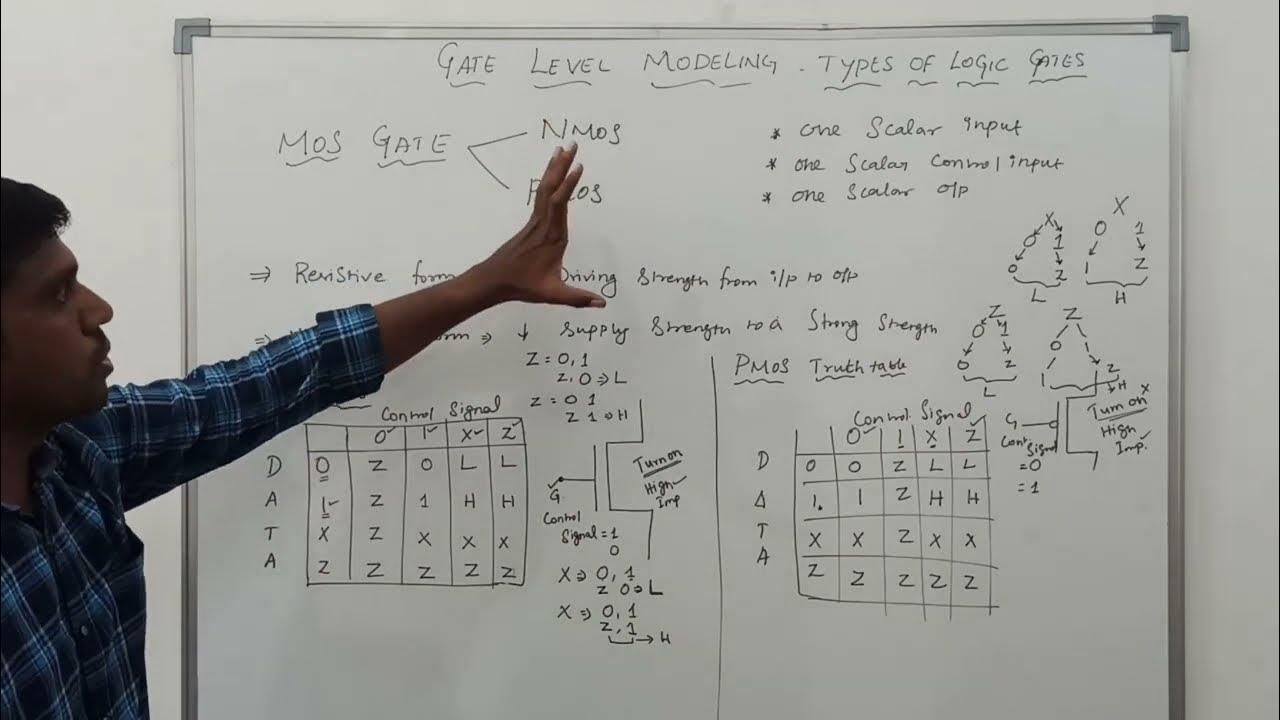 GATE LEVEL MODELING. TYPES OF LOGIC GATES
MOS GATE
NMOS
* one Scalar input
* one Scalar Control input
* one Scalar o/p
⇒ Resistive form
Driving Strength from i/p to o/p
⇒ ↓ Supply Strength to a Strong Strength
Z = 0, 1
Z, 0 ⇒ L
Z = 0 1
Z 1 ⇒ H
Control Signal
0 1 X Z
D 0 Z 0 L L
A 1 Z 1 H H
T X Z X X X
A Z Z Z Z Z
G
Control
Signal = 1
0
Turn on
High
Imp
X ⇒ 0, 1
Z 0 ⇒ L
X ⇒ 0, 1
Z, 1 → H
PMOS Truth table
Control Signal
0 1 X Z
D 0 0 Z L L
A 1 1 Z H H
T X X Z X X
A Z Z Z Z Z
X
0 1
0 Z
L
X
0 1
1 Z
H
Z
0 1
0 Z
L
Z
0
1 Z
H
G
Cont
Signal
= 0
= 1
Turn on X
High
Imp.